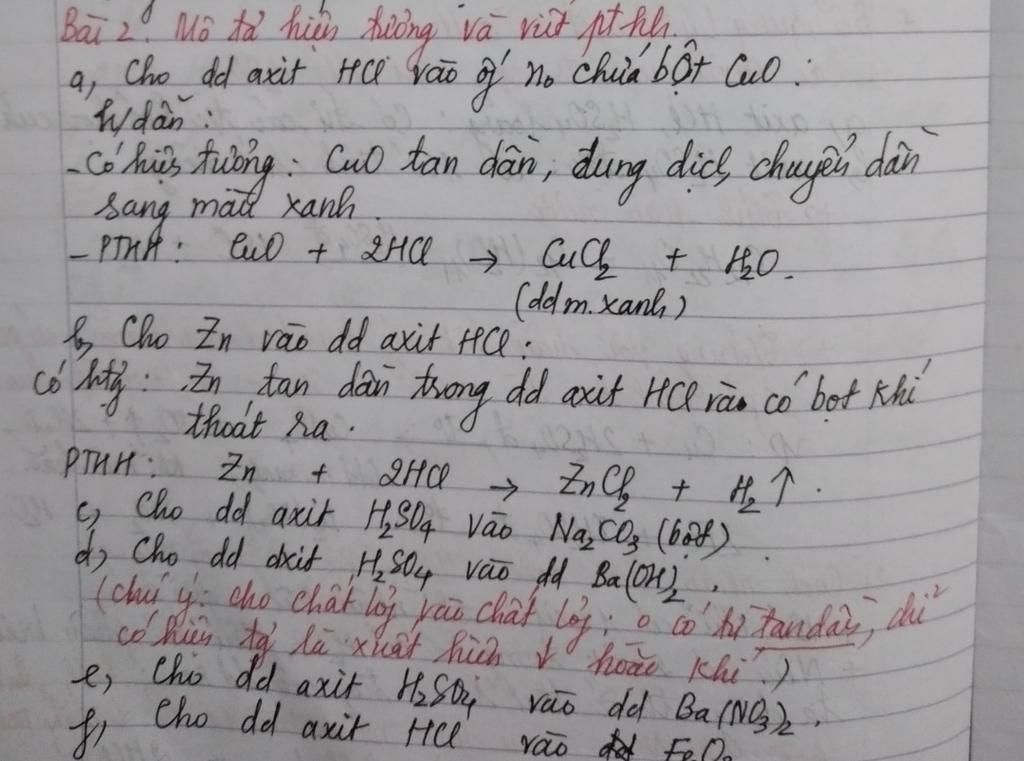 Bài 2. Mô tả hiện tượng và viết pthh.
a, Cho dd axit HCl vào ố no chứa bột CuO :
h/dẫn :
- Có hiện tượng : CuO tan dần, dung dịch chuyển dần
sang màu xanh.
- PTHH : CuO + 2HCl → CuCl2 + H2O.
(dd m. xanh)
b, Cho Zn vào dd axit HCl :
Có htg : Zn tan dần trong dd axit HCl vào có bọt khí
thoát ra.
PTHH : Zn + 2HCl → ZnCl2 + H2↑.
c, Cho dd axit H2SO4 vào Na2CO3 (bột).
d, Cho dd axit H2SO4 vào dd Ba(OH)2.
(chú ý: cho chất lỏg vào chất lỏg : o có ht tan dần, chỉ
có hiện tg là xuất hiện ↓ hoặc khí.)
e, Cho dd axit H2SO4 vào dd Ba(NO3)2.
f, Cho dd axit HCl vào